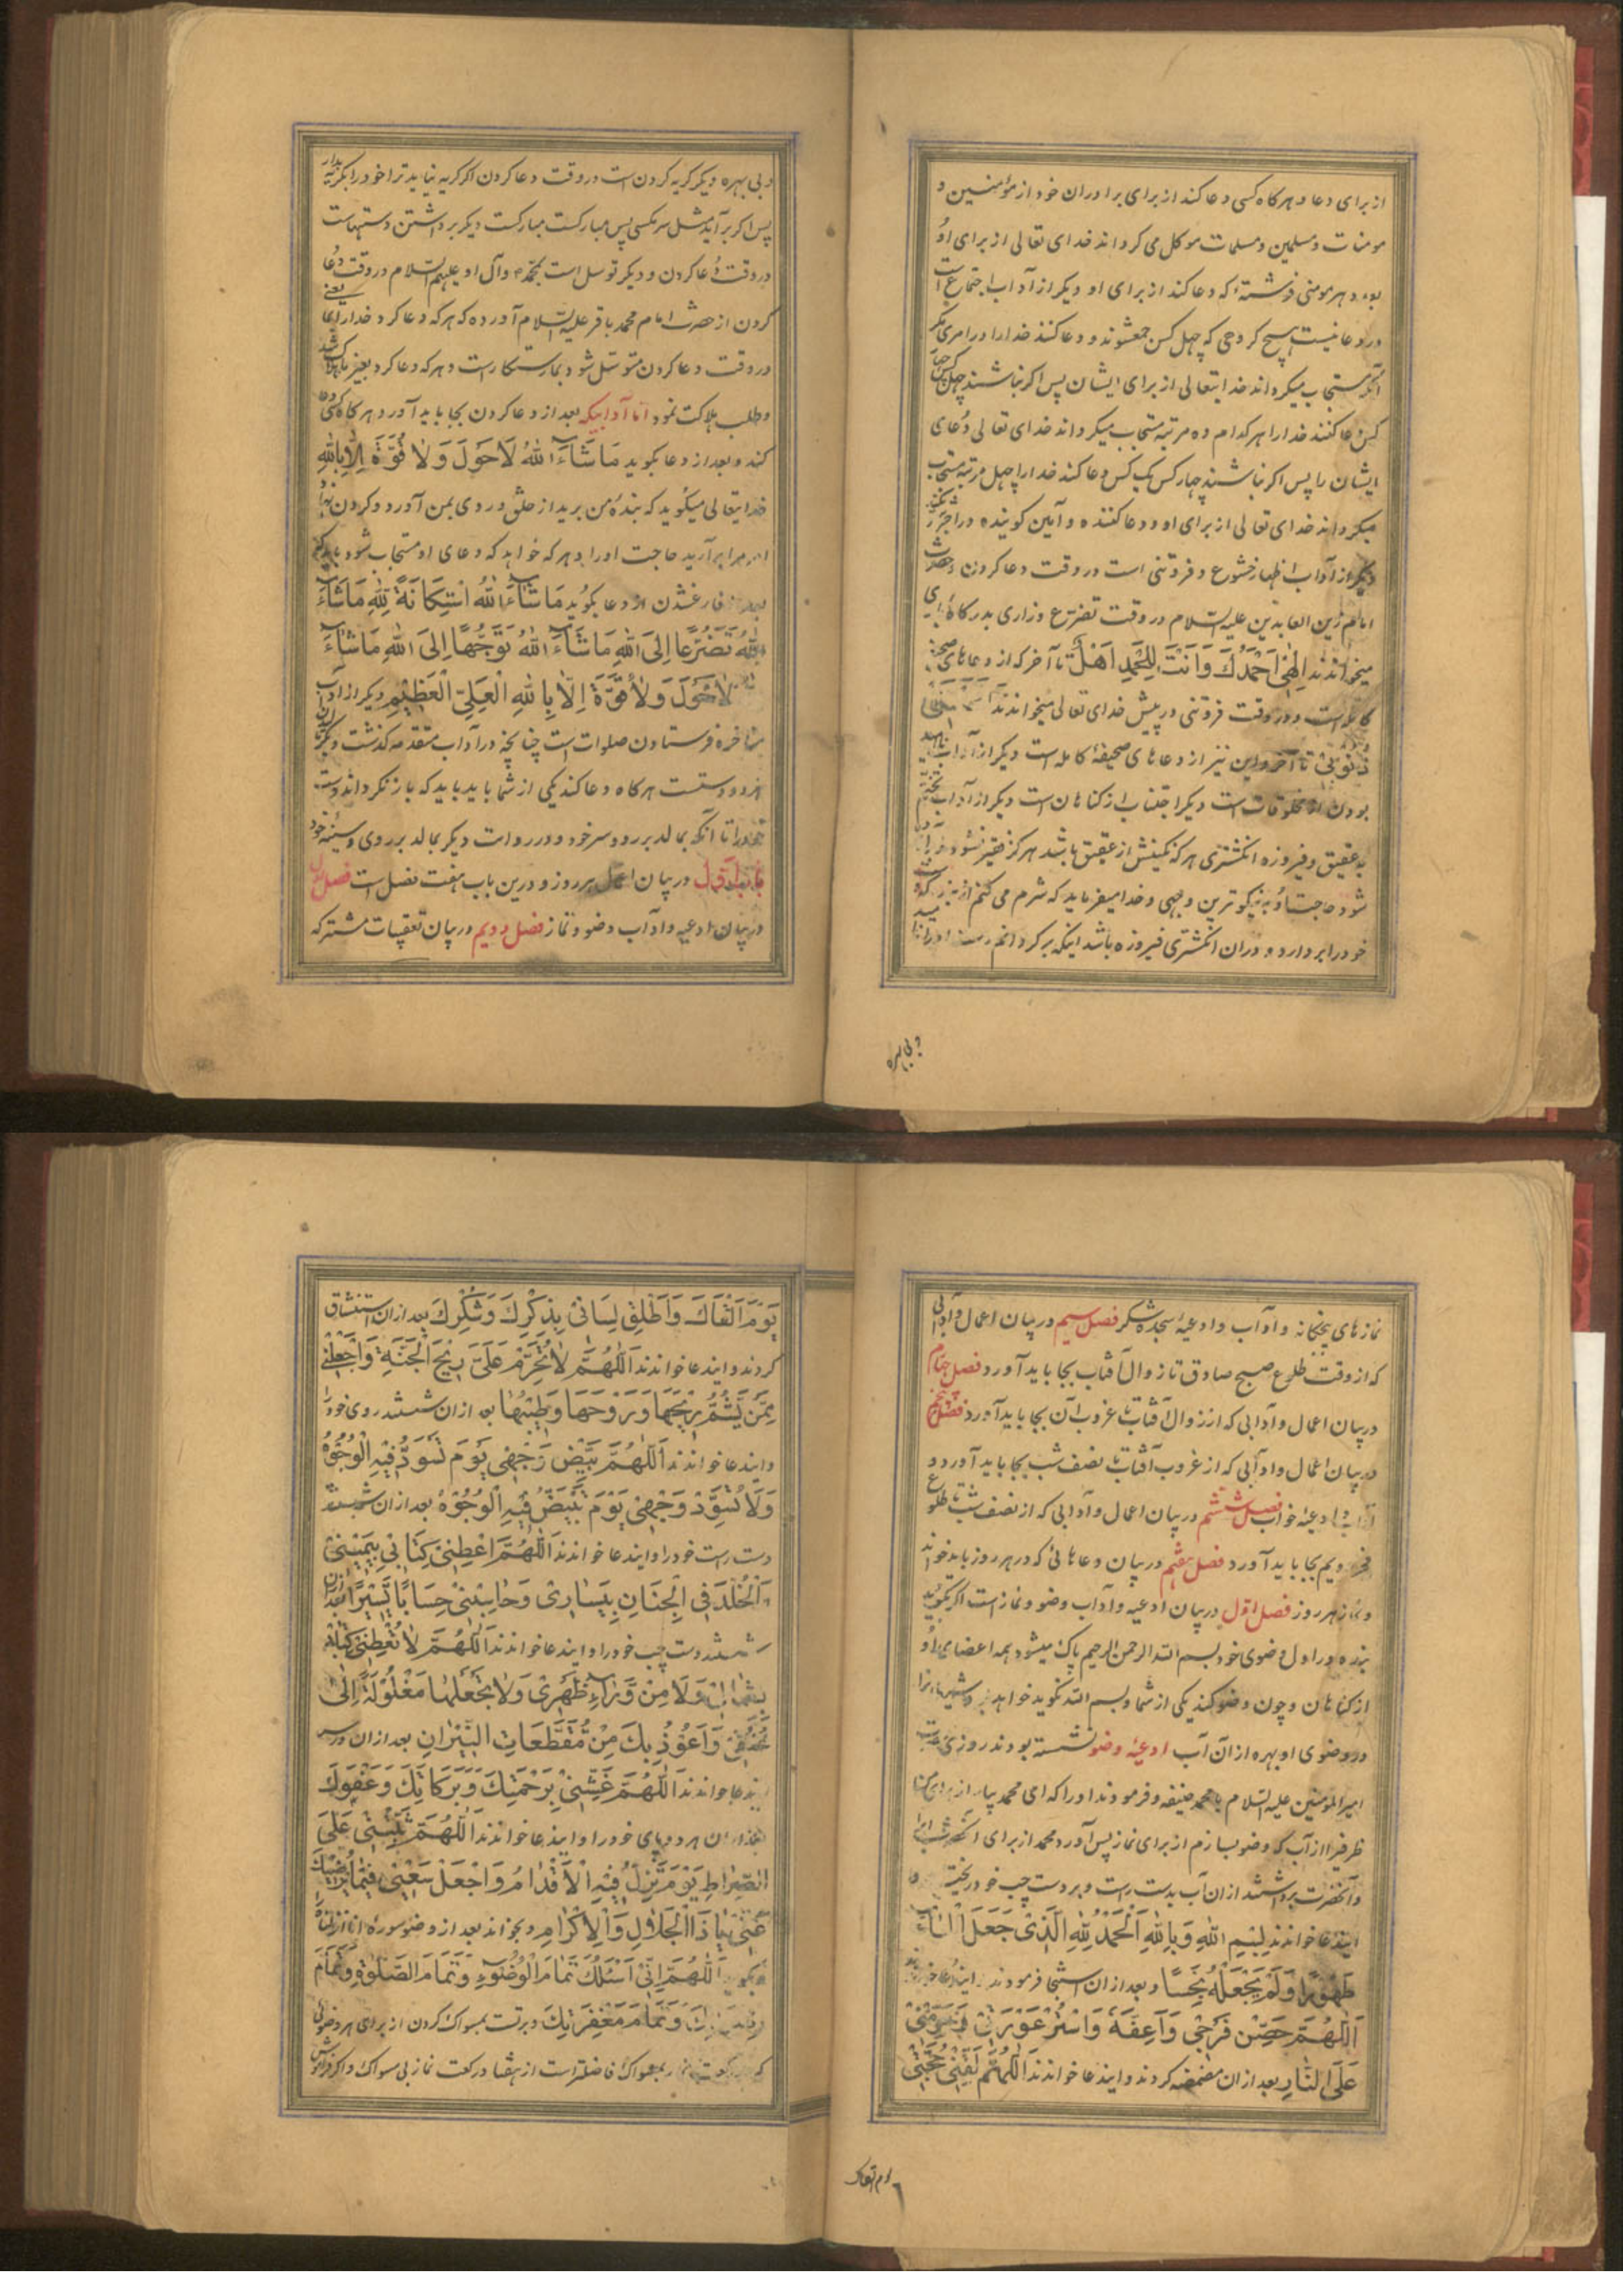 از برای دعا و هرکاه کسی دعا کند از برای برادران خود از مؤمنین و
مومنات و مسلمین و مسلمات موکل می کرداند خدای تعالی از برای او
بعدد هر مومنی فرشتهٔ که دعا کند از برای او دیکر از آداب اجتماع است
در دعا نیست هیچ کروهی که چهل کس جمعشوند و دعا کنند خدا را در امری مکر
آنکه مستجاب میکرداند خدایتعالی از برای ایشان پس اکر نباشند چهل کس
کس دعا کنند خدا را هر کدام ده مرتبه مستجاب میکرداند خدای تعالی دعای
ایشان را پس اکر نباشند چهار کس یک کس دعا کند خدا را چهل مرتبه مستجاب
میکرداند خدای تعالی از برای او و دعا کننده و آمین کوینده در اجر
دیکر از آداب اظهار خشوع و فروتنی است در وقت دعا کردن و حضرت
امام زین العابدین علیه السلام در وقت تضرع و زاری بدرکاه
میخواندند اِلٰهی اَحْمَدُكَ وَاَنْتَ لِلْحَمْدِ اَهْلٌ تا آخر که از دعاهای صحیفهٔ
کامله است و در وقت فروتنی در پیش خدای تعالی میخواندند
ذُنُوبی تا آخر و این نیز از دعاهای صحیفهٔ کامله است دیکر از آداب
بودن از مخلوقات است دیکر اجتناب از کناهان است دیکر از آداب تختم
به عقیق و فیروزه انکشتری هر که نکینش از عقیق باشد هرکز فقیر نشود و
شود حاجت او به نیکوترین وجهی و خدا میفرماید که شرم می کنم از بنده که
خود را بردارد و در ان انکشتری فیروزه باشد اینکه برکردانم
و بی بهره
و بی بهره دیکر کریه کردن است در وقت دعا کردن اکر کریه نیاید ترا خود را بکریه بدار
پس اکر برآید مثل سر مکسی پس مبارکست مبارکست دیکر برداشتن دستهاست
در وقت دعا کردن و دیکر توسل است بمحمد و آل او علیهم السلام در وقت دعا
کردن از حضرت امام محمد باقر علیه السلام آورده که هر که دعا کرد خدا را بما یعنی
در وقت دعا کردن متوسل شود بما رستکار است و هر که دعا کرد بغیر ما هلاک شد
و طلب هلاکت نمود اما آدابیکه بعد از دعا کردن بجا باید آورد هرکاه کسی دعا
کند و بعد از دعا بکوید مَا شَآءَ اللهُ لَاحَوْلَ وَلَا قُوَّةَ اِلَّا بِاللهِ
خدایتعالی میکوید که بندهٔ من برید از خلق و روی بمن آورد و کردن نهاد
امر مرا برآرید حاجت او را و هر که خواهد که دعای او مستجاب شود باید که
بعد از فارغشدن از دعا بکوید مَا شَآءَ اللهُ اسْتِكَانَةً لِلّٰهِ مَاشَآءَ
اللهُ تَضَرُّعًا اِلَى اللهِ مَا شَآءَ اللهُ تَوَجُّهًا اِلَى اللهِ مَاشَآءَ
اللهُ لَاحَوْلَ وَلَا قُوَّةَ اِلَّا بِاللهِ الْعَلِيِّ الْعَظِيْمِ دیکر از آداب
متاخره فرستادن صلوات است چنانچه در آداب متقدمه کذشت و دیکر
هر دو دستست هرکاه دعا کند یکی از شما باید باید که باز نکرداند دست
خود را تا آنکه بمالد بر رو و سر خود و در روایت دیکر بمالد بر روی و سینهٔ خود
باب اول در بیان اعمال هر روز و درین باب هفت فصل است فصل اول
در بیان ادعیه و آداب وضو و نماز فصل دویم در بیان تعقیبات مشترکه
نمازهای پنجکانه و آداب و ادعیهٔ سجدهٔ شکر فصل سیم در بیان اعمال و آدابی
که از وقت طلوع صبح صادق تا زوال آفتاب بجا باید آورد فصل چهارم
در بیان اعمال و آدابی که از زوال آفتاب تا غروب آن بجا باید آورد فصل پنجم
در بیان اعمال و آدابی که از غروب آفتاب تا نصف شب بجا باید آورد و
آداب و ادعیهٔ خواب فصل ششم در بیان اعمال و آدابی که از نصف شب تا طلوع
فجر دویم بجا باید آورد فصل هفتم در بیان دعاهائی که در هر روز باید خواند
و نماز هر روز فصل اول در بیان ادعیه و آداب وضو و نماز است اکر بکوید
بنده در اول وضوی خود بسم الله الرحمن الرحیم پاک میشود همه اعضای او
از کناهان و چون وضو کند یکی از شما و بسم الله نکوید خواهد بود شیطان را
در وضوی او بهره از آن آب ادعیهٔ وضو نشسته بودند روزی حضرت
امیرالمؤمنین علیه السلام با محمد حنفیه و فرمودند او را که ای محمد بیار از برای من
ظرفی از آب که وضو بسازم از برای نماز پس آورد محمد از برای آنحضرت آب را
و آنحضرت برداشتند از ان آب بدست راست و بر دست چپ خود ریختند و
ایندعا خواندند بِسْمِ اللهِ وَبِاللهِ اَلْحَمْدُ لِلّٰهِ الَّذِیْ جَعَلَ الْمَآءَ
طَهُوْرًا وَلَمْ يَجْعَلْهُ نَجِسًا و بعد از ان استنجا فرمودند و ایندعا خواندند
اَللّٰهُمَّ حَصِّنْ فَرْجِیْ وَاَعِفَّهُ وَاسْتُرْ عَوْرَتِیْ وَحَرِّمْنِیْ
عَلَى النَّارِ بعد از ان مضمضه کردند و ایندعا خواندند اَللّٰهُمَّ لَقِّنِیْ حُجَّتِیْ
یوم القاک
يَوْمَ اَلْقَاكَ وَاَطْلِقْ لِسَانِیْ بِذِكْرِكَ وَشُكْرِكَ بعد از ان استنشاق
کردند و ایندعا خواندند اَللّٰهُمَّ لَا تُحَرِّمْ عَلَیَّ رِيْحَ الْجَنَّةِ وَاجْعَلْنِیْ
مِمَّنْ يَشُمُّ رِيْحَهَا وَرَوْحَهَا وَطِيْبَهَا بعد از ان شستند روی خود را
و ایندعا خواندند اَللّٰهُمَّ بَيِّضْ وَجْهِیْ يَوْمَ تَسْوَدُّ فِيْهِ الْوُجُوْهُ
وَلَا تُسَوِّدْ وَجْهِیْ يَوْمَ تَبْيَضُّ فِيْهِ الْوُجُوْهُ بعد از ان شستند
دست راست خود را و ایندعا خواندند اَللّٰهُمَّ اَعْطِنِیْ كِتَابِیْ بِيَمِيْنِیْ
وَالْخُلْدَ فِی الْجِنَانِ بِيَسَارِیْ وَحَاسِبْنِیْ حِسَابًا يَسِيْرًا بعد از ان
شستند دست چپ خود را و ایندعا خواندند اَللّٰهُمَّ لَا تُعْطِنِیْ كِتَابِیْ
بِشِمَالِیْ وَلَا مِنْ وَرَآءِ ظَهْرِیْ وَلَا تَجْعَلْهَا مَغْلُوْلَةً اِلٰی
عُنُقِیْ وَاَعُوْذُ بِكَ مِنْ مُقَطَّعَاتِ النِّيْرَانِ بعد از ان
ایندعا خواندند اَللّٰهُمَّ غَشِّنِیْ بِرَحْمَتِكَ وَبَرَكَاتِكَ وَعَفْوِكَ
بعد از ان هر دو پای خود را و ایندعا خواندند اَللّٰهُمَّ ثَبِّتْنِیْ عَلَی
الصِّرَاطِ يَوْمَ تَزِلُّ فِيْهِ الْاَقْدَامُ وَاجْعَلْ سَعْیِیْ فِيْمَا يُرْضِيْكَ
عَنِّیْ يَا ذَا الْجَلَالِ وَالْاِكْرَامِ و بخواند بعد از وضو سورهٔ انا انزلناه
بکوید اَللّٰهُمَّ اِنِّیْ اَسْئَلُكَ تَمَامَ الْوُضُوْءِ وَتَمَامَ الصَّلٰوةِ وَتَمَامَ
رِضْوَانِكَ وَتَمَامَ مَغْفِرَتِكَ و برتست بمسواک کردن از برای هر وضوئی
که رکعت نماز بمسواک فاضلتر است از هفتاد رکعت نماز بی مسواک و اکر فراموش